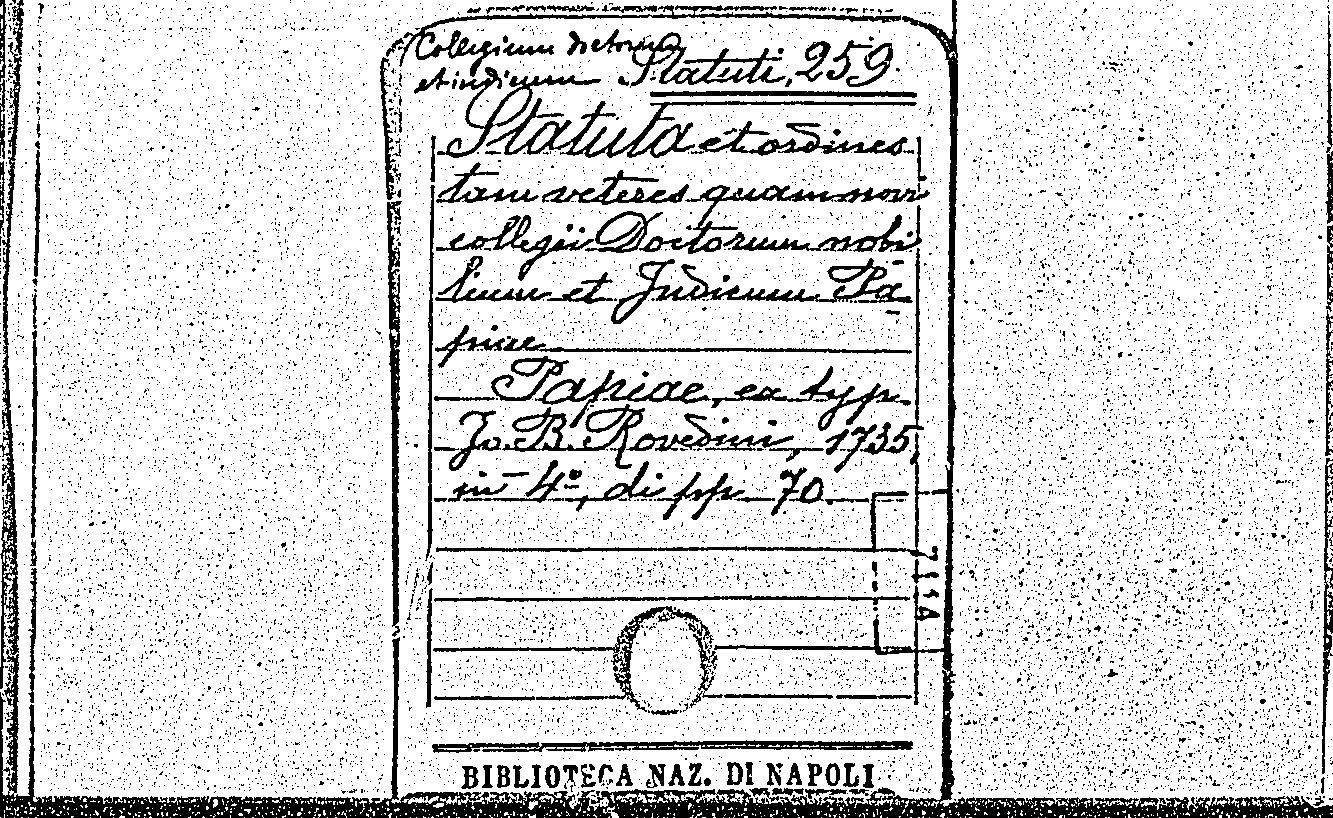 Collegium doctorum
et iudicum Statuti, 259.
Statuta et ordines
tam veteres quam novi
collegii Doctorum nobi
lium et Judicum Pa
piae
Papiae, ex typ.
Jo. B. Rovedini, 1735,
in 4º, di pp. 70.
BIBLIOTECA NAZ. DI NAPOLI